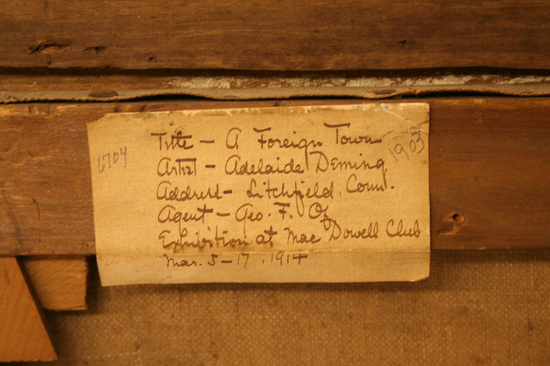 Title – A Foreign Town
1903
Artist – Adelaide Deming
Address – Litchfield, Conn.
Agent – Geo. F. Of
Exhibition at Mac Dowell Club
Mar. 5–17, 1914